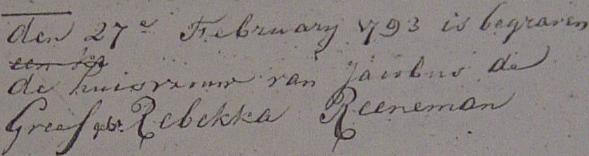 den 27e February 1793 is begraven
de huisvrouw van Jacobus de
Greef geb. Rebekka Reeneman